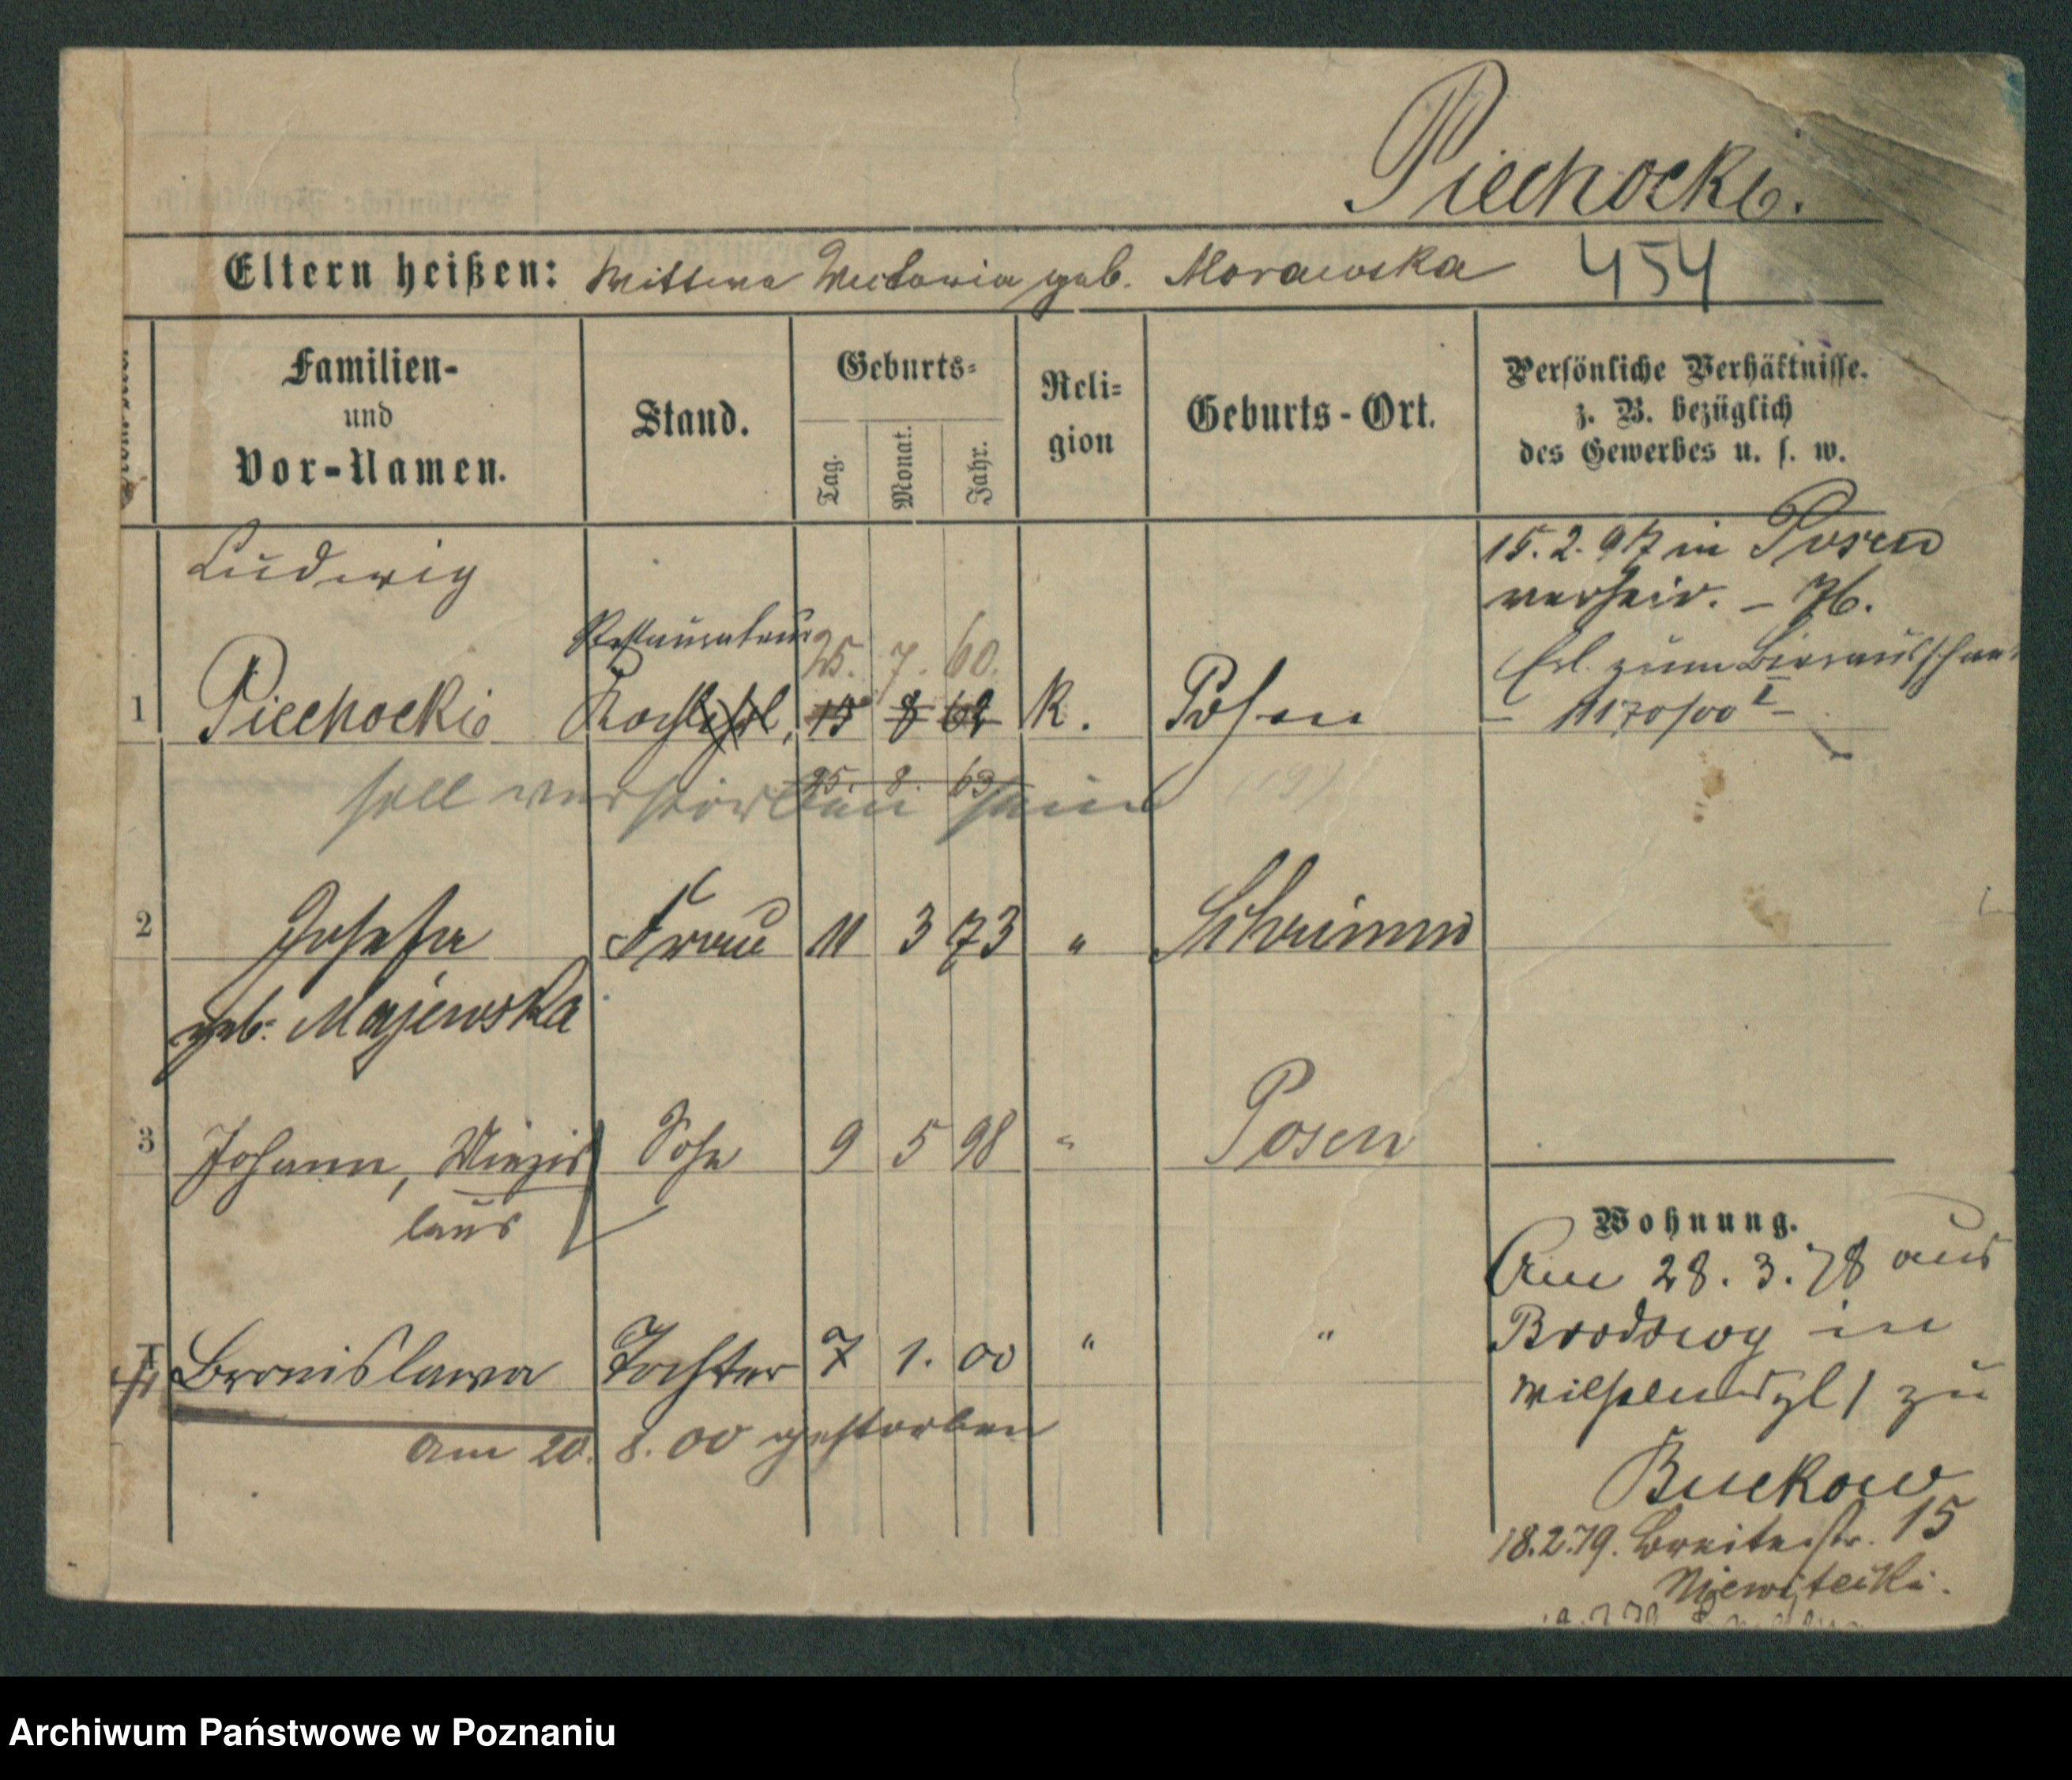 Piechocki.
Eltern heißen: Wittwe Victoria geb. Morawska 454
Familien-
und
Vor-Namen.
Stand.
Geburts-
Tag.
Monat.
Jahr.
Reli-
gion
Geburts-Ort.
Persönliche Verhältnisse.
z. B. bezüglich
des Gewerbes u. s. w.
Ludwig
15.2.97 in Posen
verheir. – 76.
Restaurateur 25. 7. 60.
Erl. zum Bierausschank
1 Piechocki Kochlehrl, 15 8 62 K. Posen
– 11170/00 I –
25. 8. 63
soll verstorben sein
2 Josefa Frau 11 3 73 " Schrimm
geb. Majewska
3 Johann, Miezis Sohn 9 5 98 " Posen
laus
Wohnung.
Am 28.3.78 aus
Brodowy in
zu
Buckow
4 Bronislawa Tochter 7 1. 00 " "
am 20. 8. 00 gestorben
18.2.79. Breitestr. 15
Archiwum Państwowe w Poznaniu